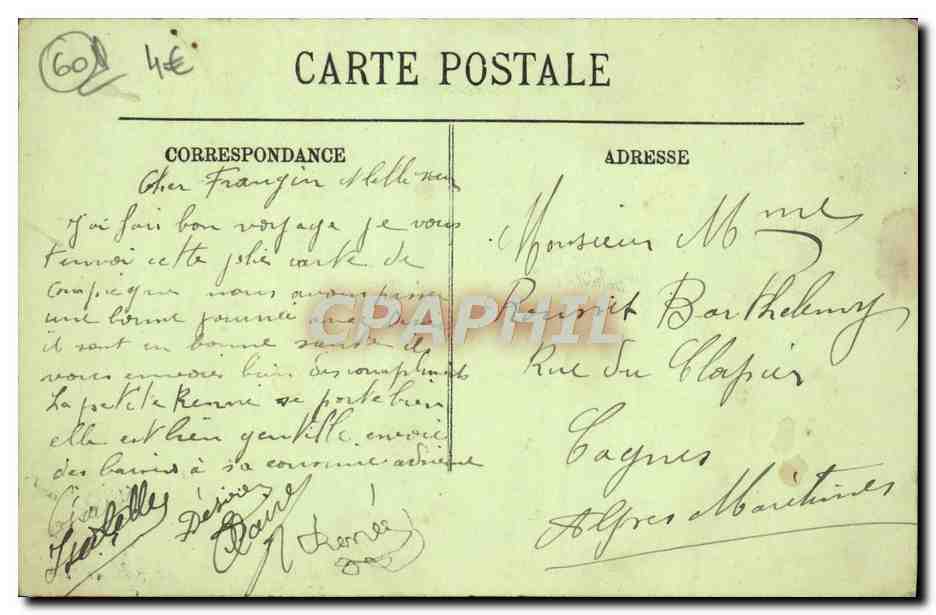 60
4€
CARTE POSTALE
CORRESPONDANCE
ADRESSE
Cher Frangin
J'ai fait bon voyage je vous
envoi cette jolie carte de
Compiegne nous avons passe
une bonne journee avec
il sont en bonne sante et
vous envoies bien des compliments
La petite Renne se porte bien
elle est bien gentille envoie
des baisers à sa cousine adrienne
Isabelle
Désirée
Renée
Monsieur Mme
Benoit Barthelemy
Rue du Clapier
Cagnes
Alpes Maritimes
CPAPHIL